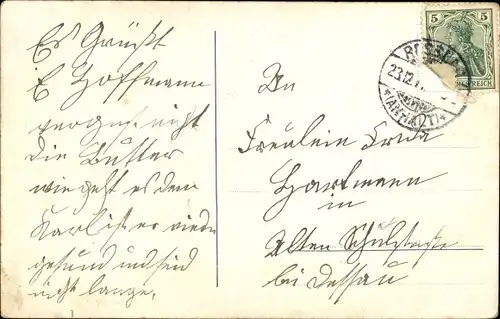 Es Grüßt
E Hoffmann
vergest nicht
die Butter
wie geht es dem
Karl ist er wieder
gesund und sind
nicht lange.
An
Fräulein Erna
Hartmann
in
Alten Schulstraße
bei Dessau
5 5
REICH
23.12.1
(ANHALT)